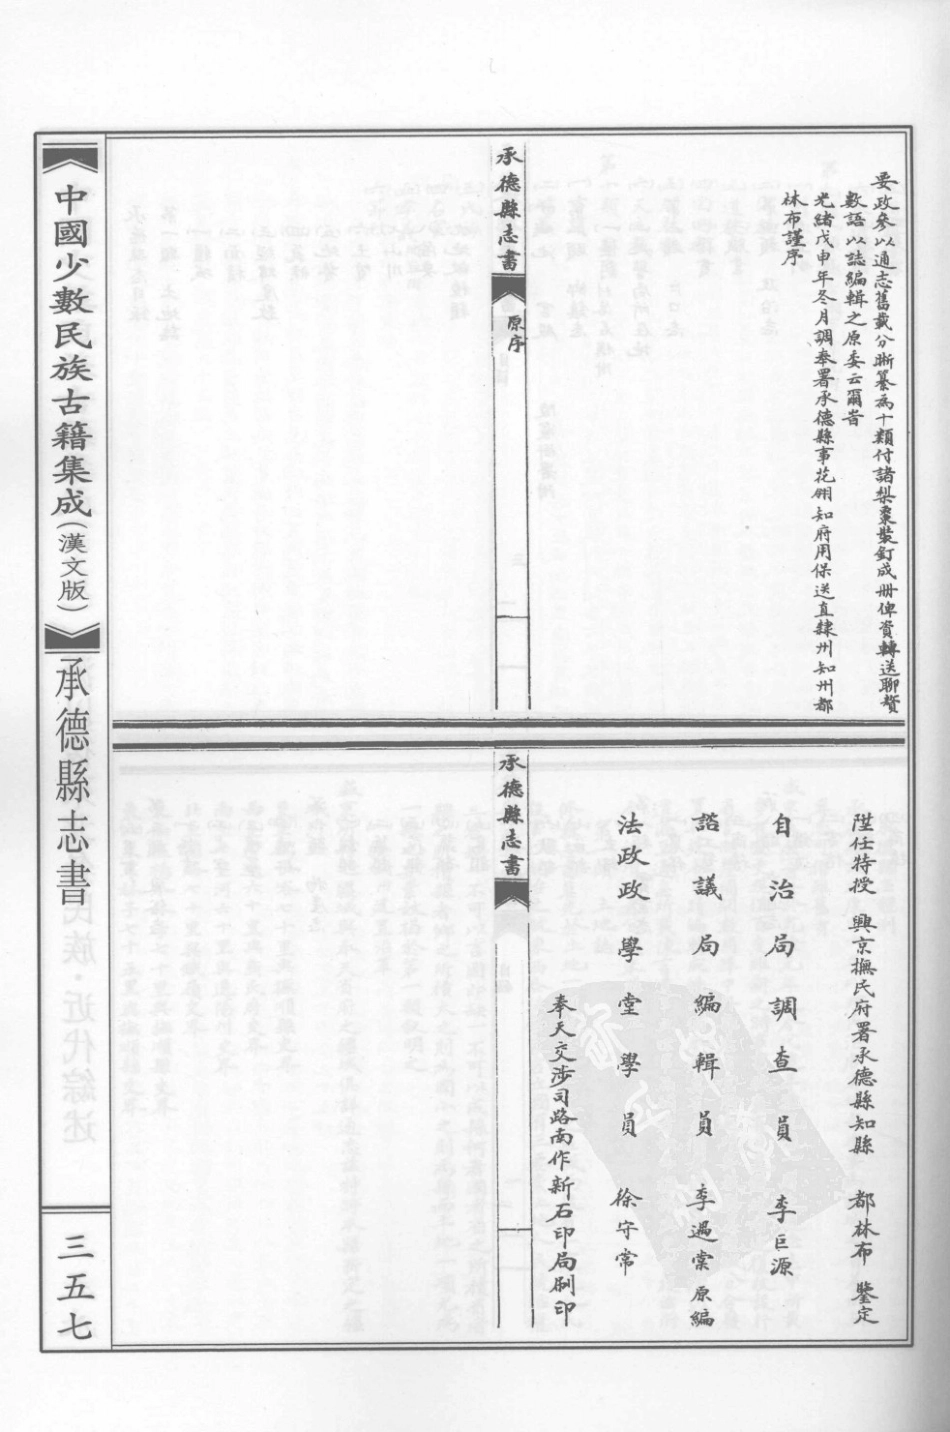 要政參以通志舊載分晰纂為十類付諸梨棗裝釘成册俾資轉送聊贅
數語以誌編輯之原委云爾旹
光緒戊申年冬月調奉署承德縣事花翎知府用保送直隸州知州都
林布謹序
承德縣志書
原序
陞任特授 興京撫民府署承德縣知縣 都林布 鑒定
自治局調查員 李巨源
諮議局編輯員 李遇棠 原編
法政政學堂學員 徐守常
奉天交涉司路南作新石印局刷印
承德縣志書
中國少數民族古籍集成(漢文版)
承德縣志書
三五七